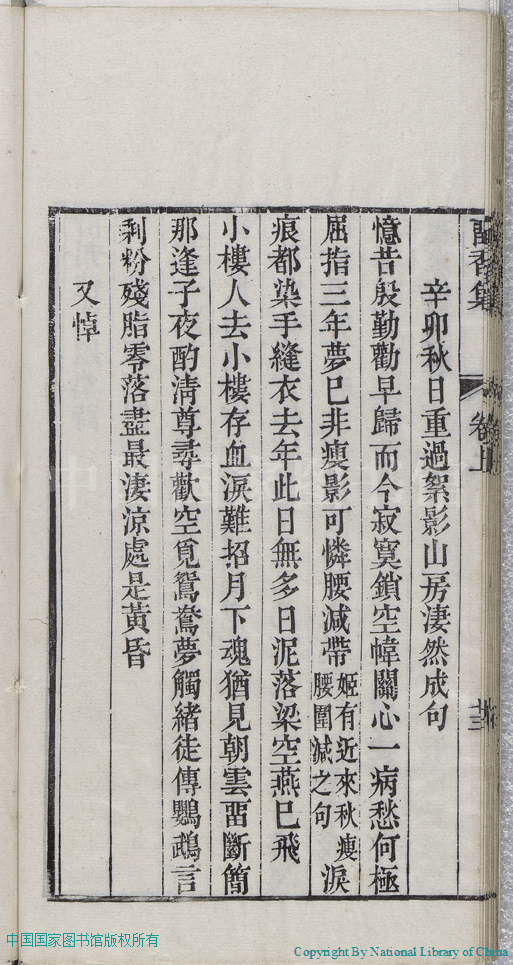 辛卯秋日重過絮影山房淒然成句
憶昔殷勤勸早歸而今寂寞鎖空幃關心一病愁何極
屈指三年夢已非瘦影可憐腰減帶姬有近來秋瘦腰圍減之句淚
痕都染手縫衣去年此日無多日泥落梁空燕已飛
小樓人去小樓存血淚難招月下魂猶見朝雲畱斷簡
那逢子夜酌清尊尋歡空覓鴛鴦夢觸緒徒傳鸚鵡言
剩粉殘脂零落盡最淒涼處是黃昏
又悼
香集
卷上
中国国家图书馆版权所有
Copyright By National Library of China